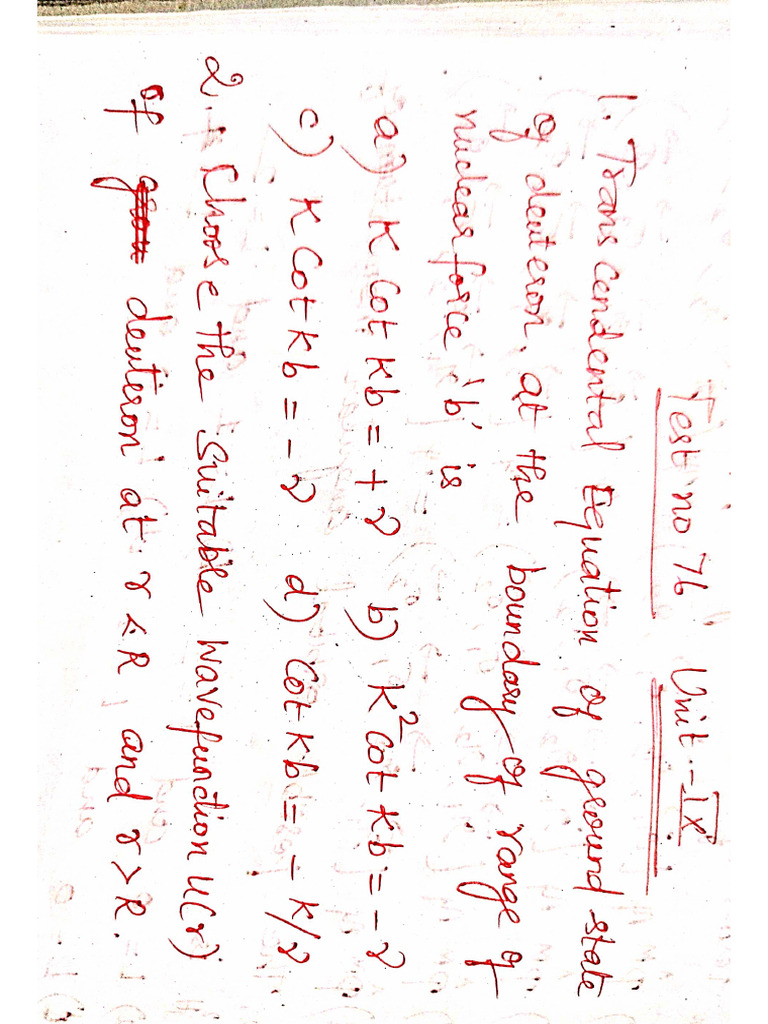 Test no 76 Unit - IX
1. Transcendental Equation of ground state
of deuteron, at the boundary of range of
nuclear force 'b' is
a) K Cot Kb = + γ b) K² cot Kb = - γ
c) K Cot Kb = - γ d) Cot Kb = - K/γ
2. Choose the Suitable Wavefunction U(r)
of deuteron at r < R and r > R.